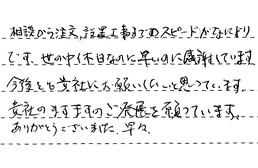 相談から注文、設置工事までのスピードがなにより
です。世の中休日なのに早いのに感謝しています
今後とも貴社にお願いしたいと思っています。
貴社のますますのご発展を願っています。
ありがとうございました。早々